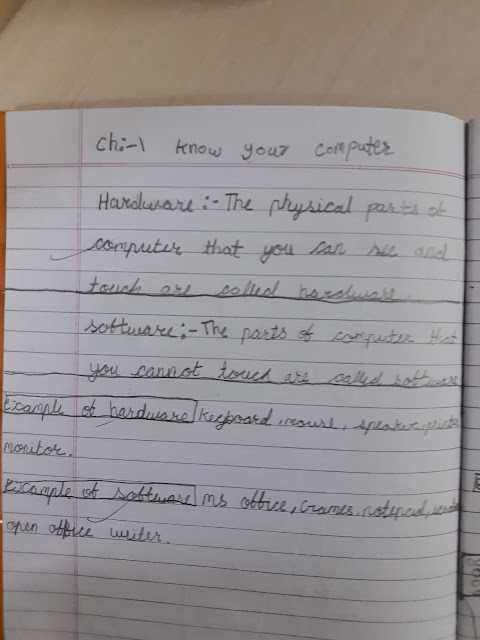 Ch:-1 Know your computer
Hardware:- The physical parts of
computer that you can see and
touch are called hardware.
Software:- The parts of computer that
you cannot touch are called software
Example of hardware keyboard, mouse, speaker, printer
monitor.
Example of software MS office, Games, notepad,
open office writer.